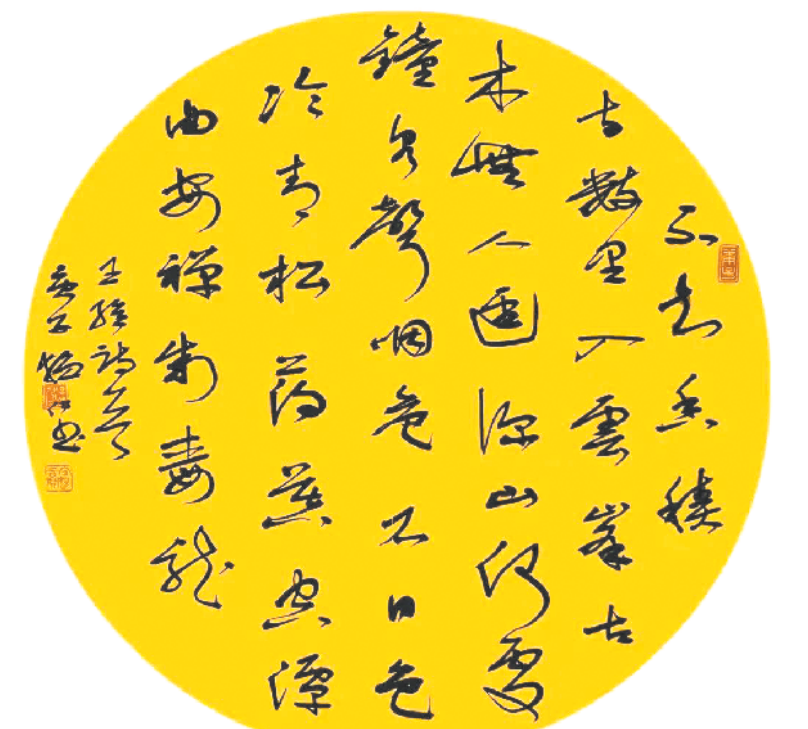 不知香積
寺數里入雲峯古
木無人逕深山何處
鐘泉聲咽危石日色
冷青松薄暮空潭
曲安禪制毒龍
王維詩一首
書